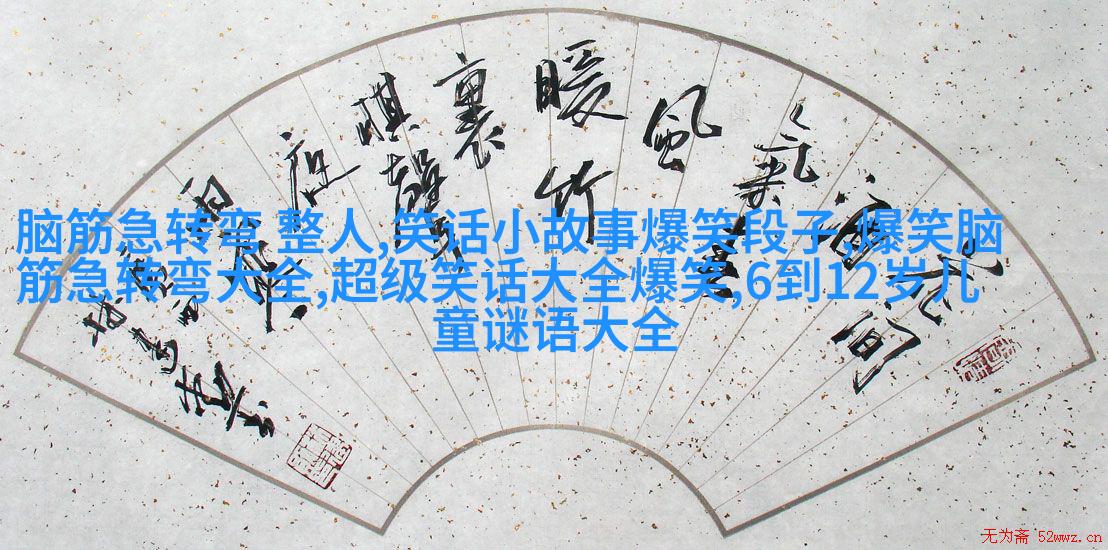 花間
酒
氣春
風
暖竹
裏
棋聲
夜
雨寒
脑筋急转弯 整人,笑话小故事爆笑段子,爆笑脑
筋急转弯大全,超级笑话大全爆笑,6到12岁儿
童谜语大全
无为斋 52wwz.cn